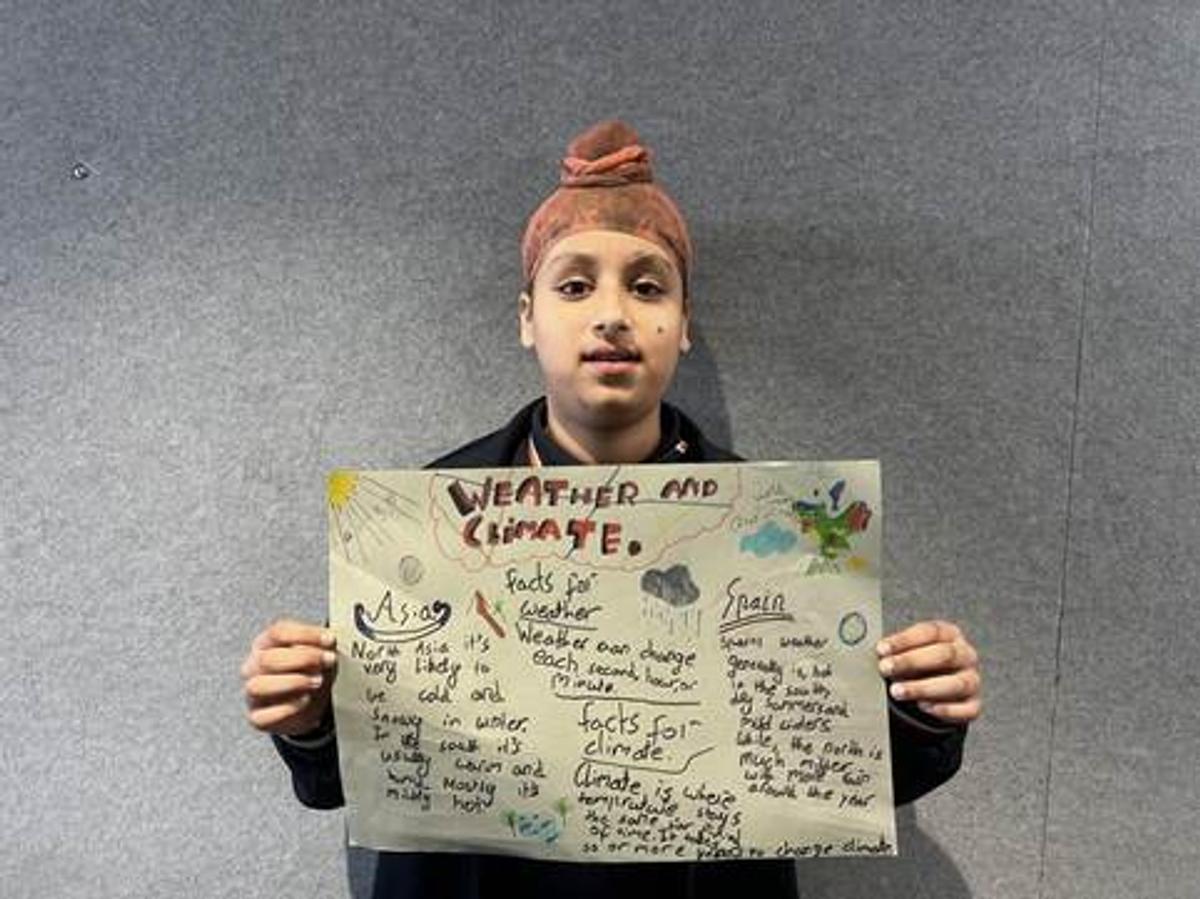 WEATHER AND
CLIMATE.
Asia
North Asia it's
very likely to
be cold and
snowy in winter.
In the south it's
usually warm and
Mostly it's
hot
facts for
weather
Weather can change
each second, hour, or
Minute.
facts for
climate.
Climate is where
temprature stays
the same for
of time. It
so or more years to change climate
Spain
Spains weather
generally is hot
in the south
dry summers and
mild winters
while, the north is
much milder
with more rain
around the year